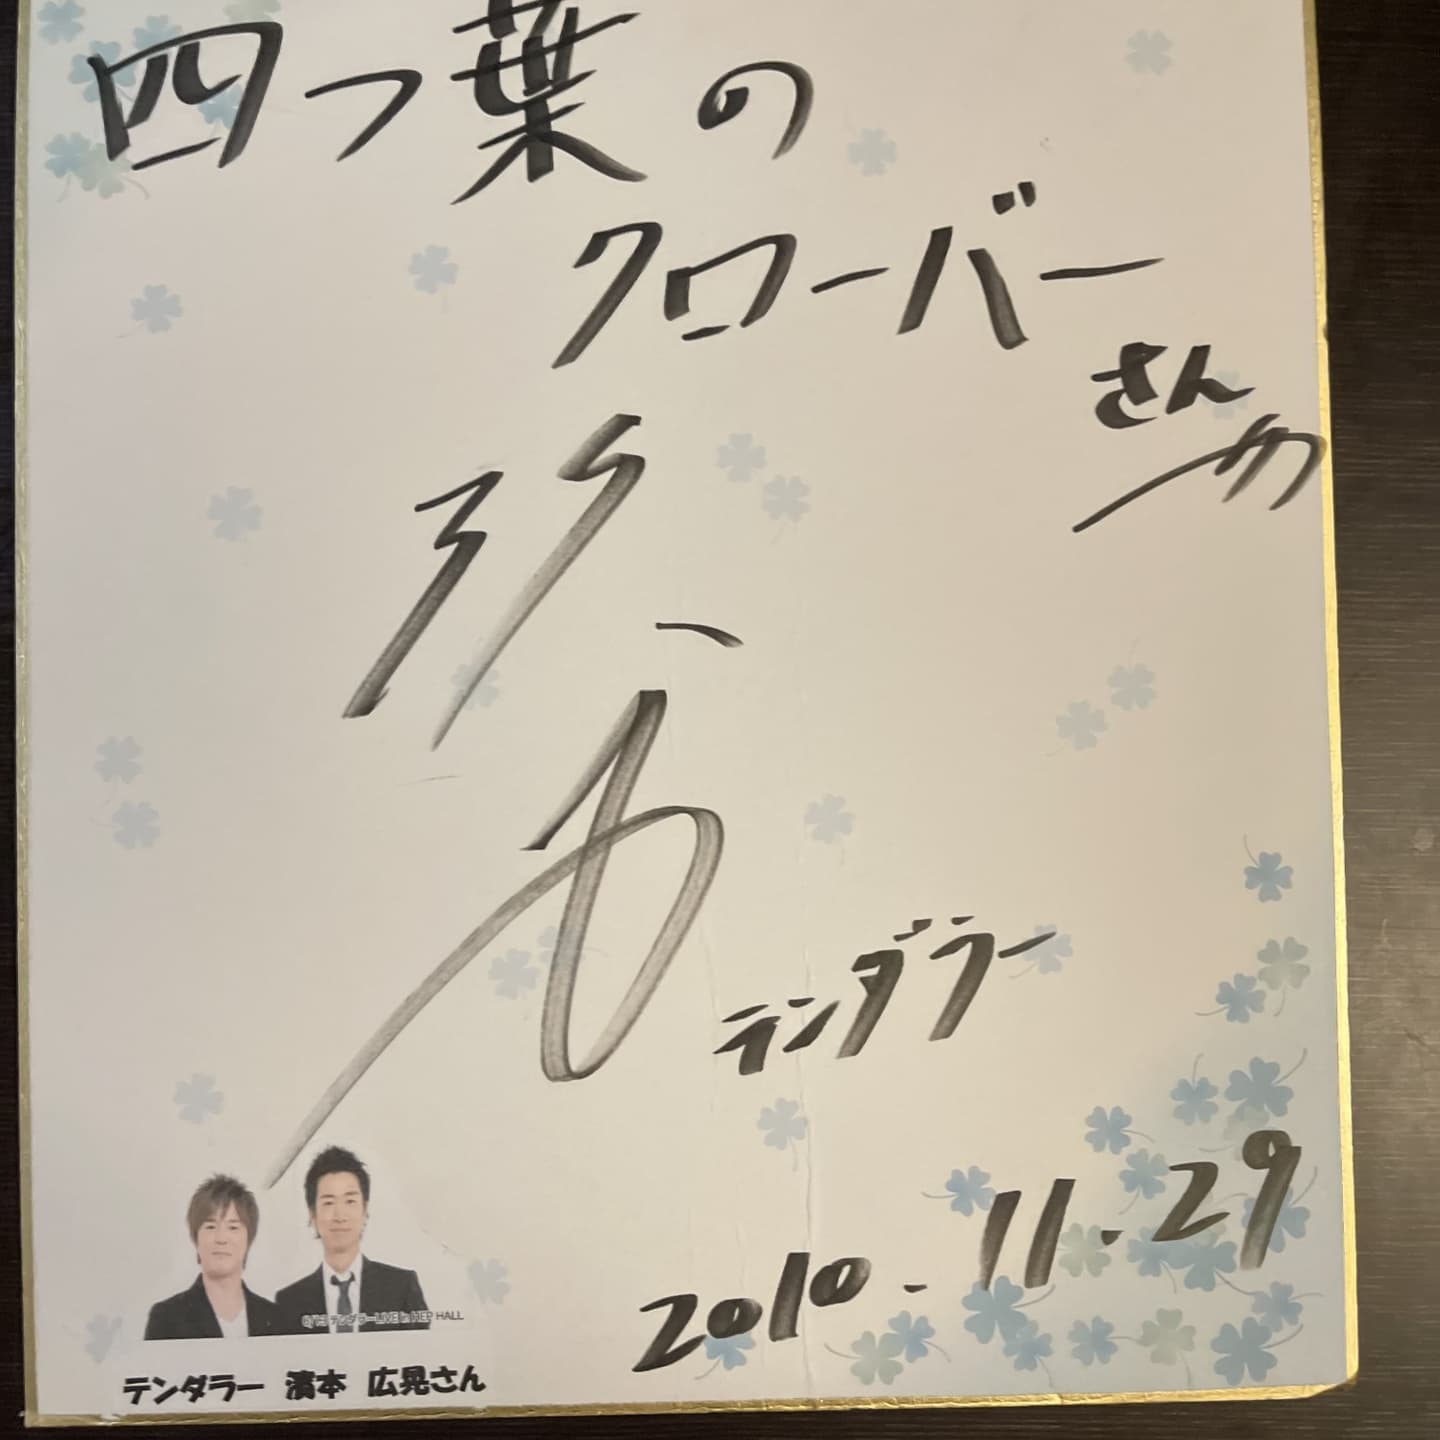 四つ葉の
クローバー
さん
テンダラー
2010.11.29
6/13 テンダラーLIVE in HEP HALL
テンダラー 濱本 広晃さん